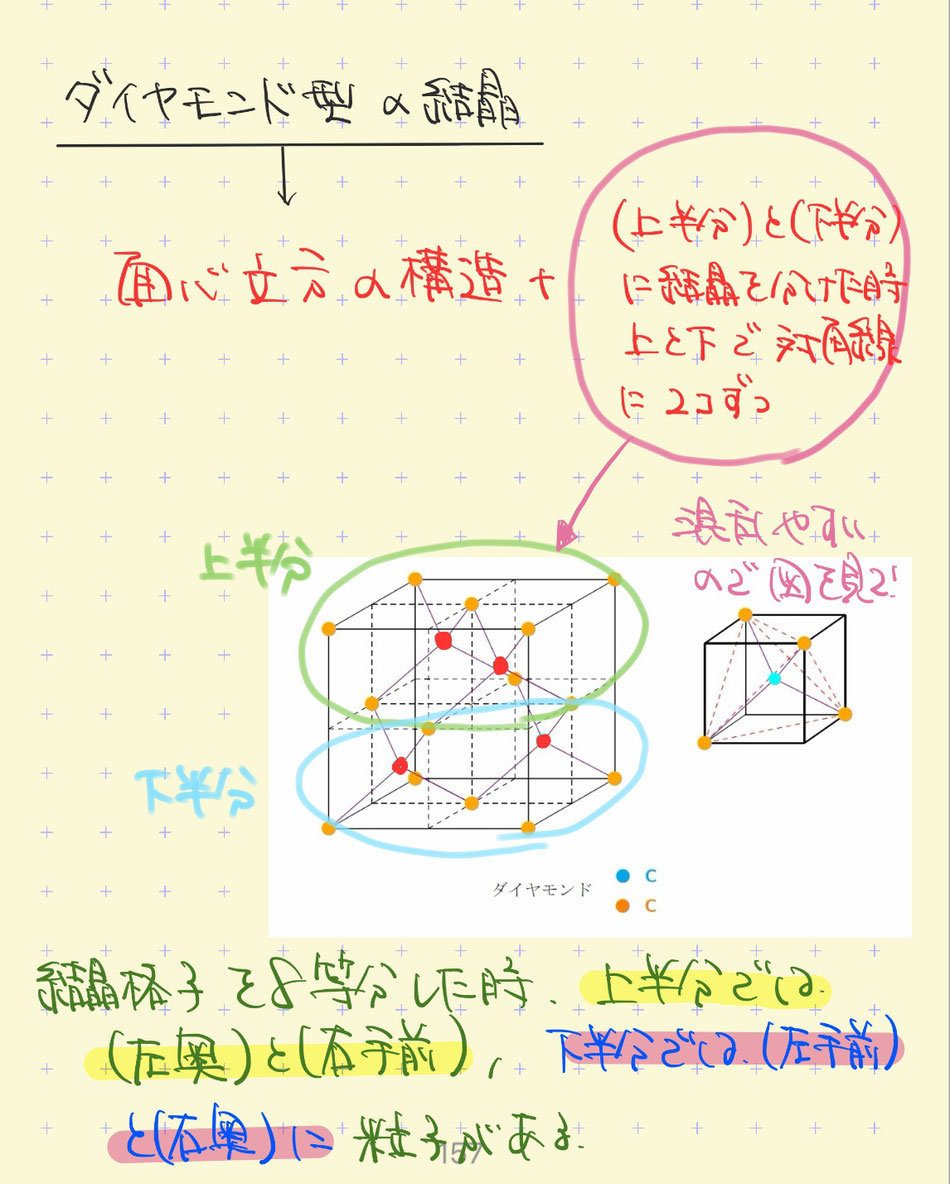 ダイヤモンド型の結晶
面心立方の構造+
(上半分)と(下半分)
に結晶を分けた時
上と下で対角線
に2コずつ
混合しやすい
ので図を見る!
上半分
下半分
ダイヤモンド
C
C
結晶格子を8等分した時、上半分では、
(左奥)と(右手前),下半分では、(左手前)
と(右奥)に粒子がある。
157